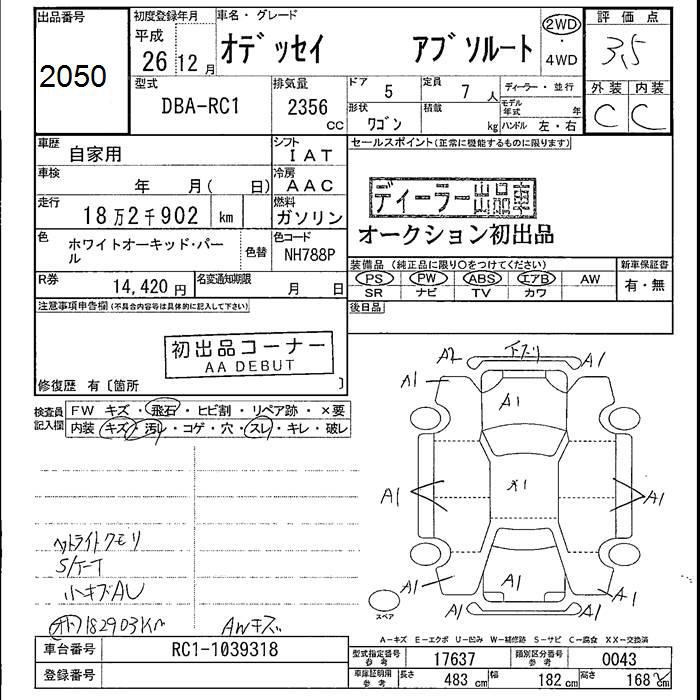 出品番号
2050
初度登録年月
平成
26 12 月
車名・グレード
オデッセイ アブソルート
2WD
・
4WD
評価点
3.5
型式
DBA-RC1
排気量
2356
CC
ドア 5
定員 7 人
ディーラー・並行
形状
ワゴン
積載
kg
モデル年式 年
ハンドル 左・右
外装 内装
C C
車歴
自家用
シフト
IAT
セールスポイント(正常に機能するものに限ります)
車検
年 月( 日)
冷房
AAC
走行
18万2千902 km
燃料
ガソリン
ディーラー出品車
オークション初出品
色
ホワイトオーキッド・パール
色替
色コード
NH788P
装備品 (純正品に限り○をつけてください)
新車保証書
PS PW ABS エアB AW
SR ナビ TV カワ
有・無
R券
14,420 円
名変通知期限
月 日
後日品
注意事項申告欄(不具合内容等は具体的に記入して下さい)
初出品コーナー
AA DEBUT
修復歴 有〔箇所 〕
検査員記入欄
FW キズ・飛石・ヒビ割・リペア跡・×要
内装 キズ・汚レ・コゲ・穴・スレ・キレ・破レ
A2 下スリ A1
A1 A1
A1
A1 X1 A1
A1 A1 A1
A1 A1
スペア
ヘットライトクモリ
S/T-T
小キズAU
オド 182903Km AWキズ
A−キズ E−エクボ U−凹み W−補修跡 S−サビ C−腐食 XX−交換済
車台番号
RC1-1039318
登録番号
型式指定番号
参考
17637
類別区分番号
参考
0043
車庫証明用
参考
長さ 483 cm 幅 182 cm 高さ 168 cm